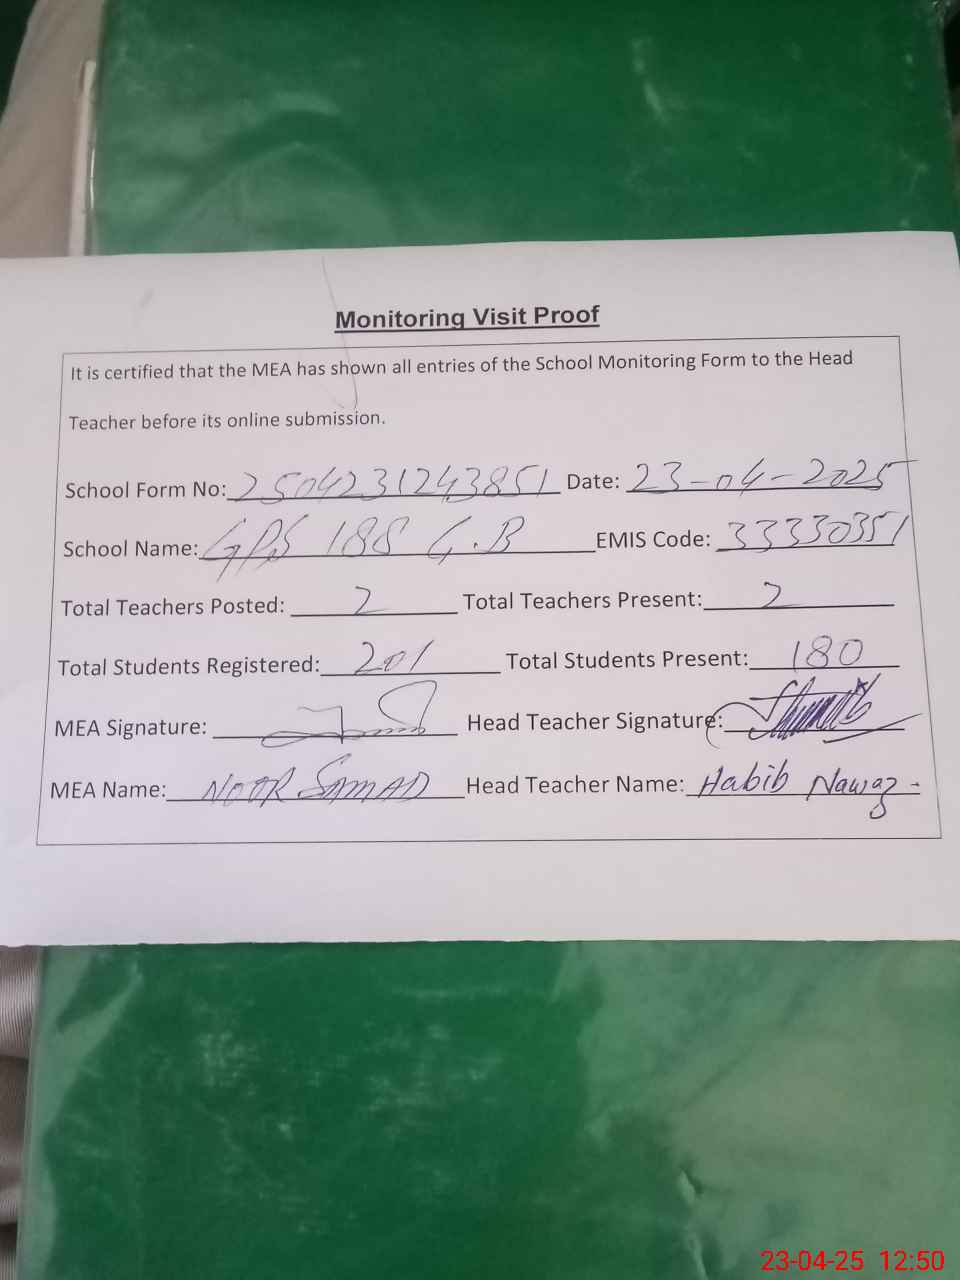 Monitoring Visit Proof
It is certified that the MEA has shown all entries of the School Monitoring Form to the Head
Teacher before its online submission.
School Form No: 2504231243851 Date: 23-04-2025
School Name: GPS 188 G.B EMIS Code: 33330351
Total Teachers Posted: 2 Total Teachers Present: 2
Total Students Registered: 201 Total Students Present: 180
MEA Signature: Head Teacher Signature:
MEA Name: NOOR SAMAD Head Teacher Name: Habib Nawaz
23-04-25 12:50